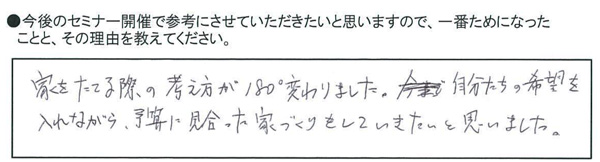 ●今後のセミナー開催で参考にさせていただきたいと思いますので、一番ためになった
ことと、その理由を教えてください。
家をたてる際の考え方が180°変わりました。自分たちの希望を
入れながら、予算に見合った家づくりをしていきたいと思いました。